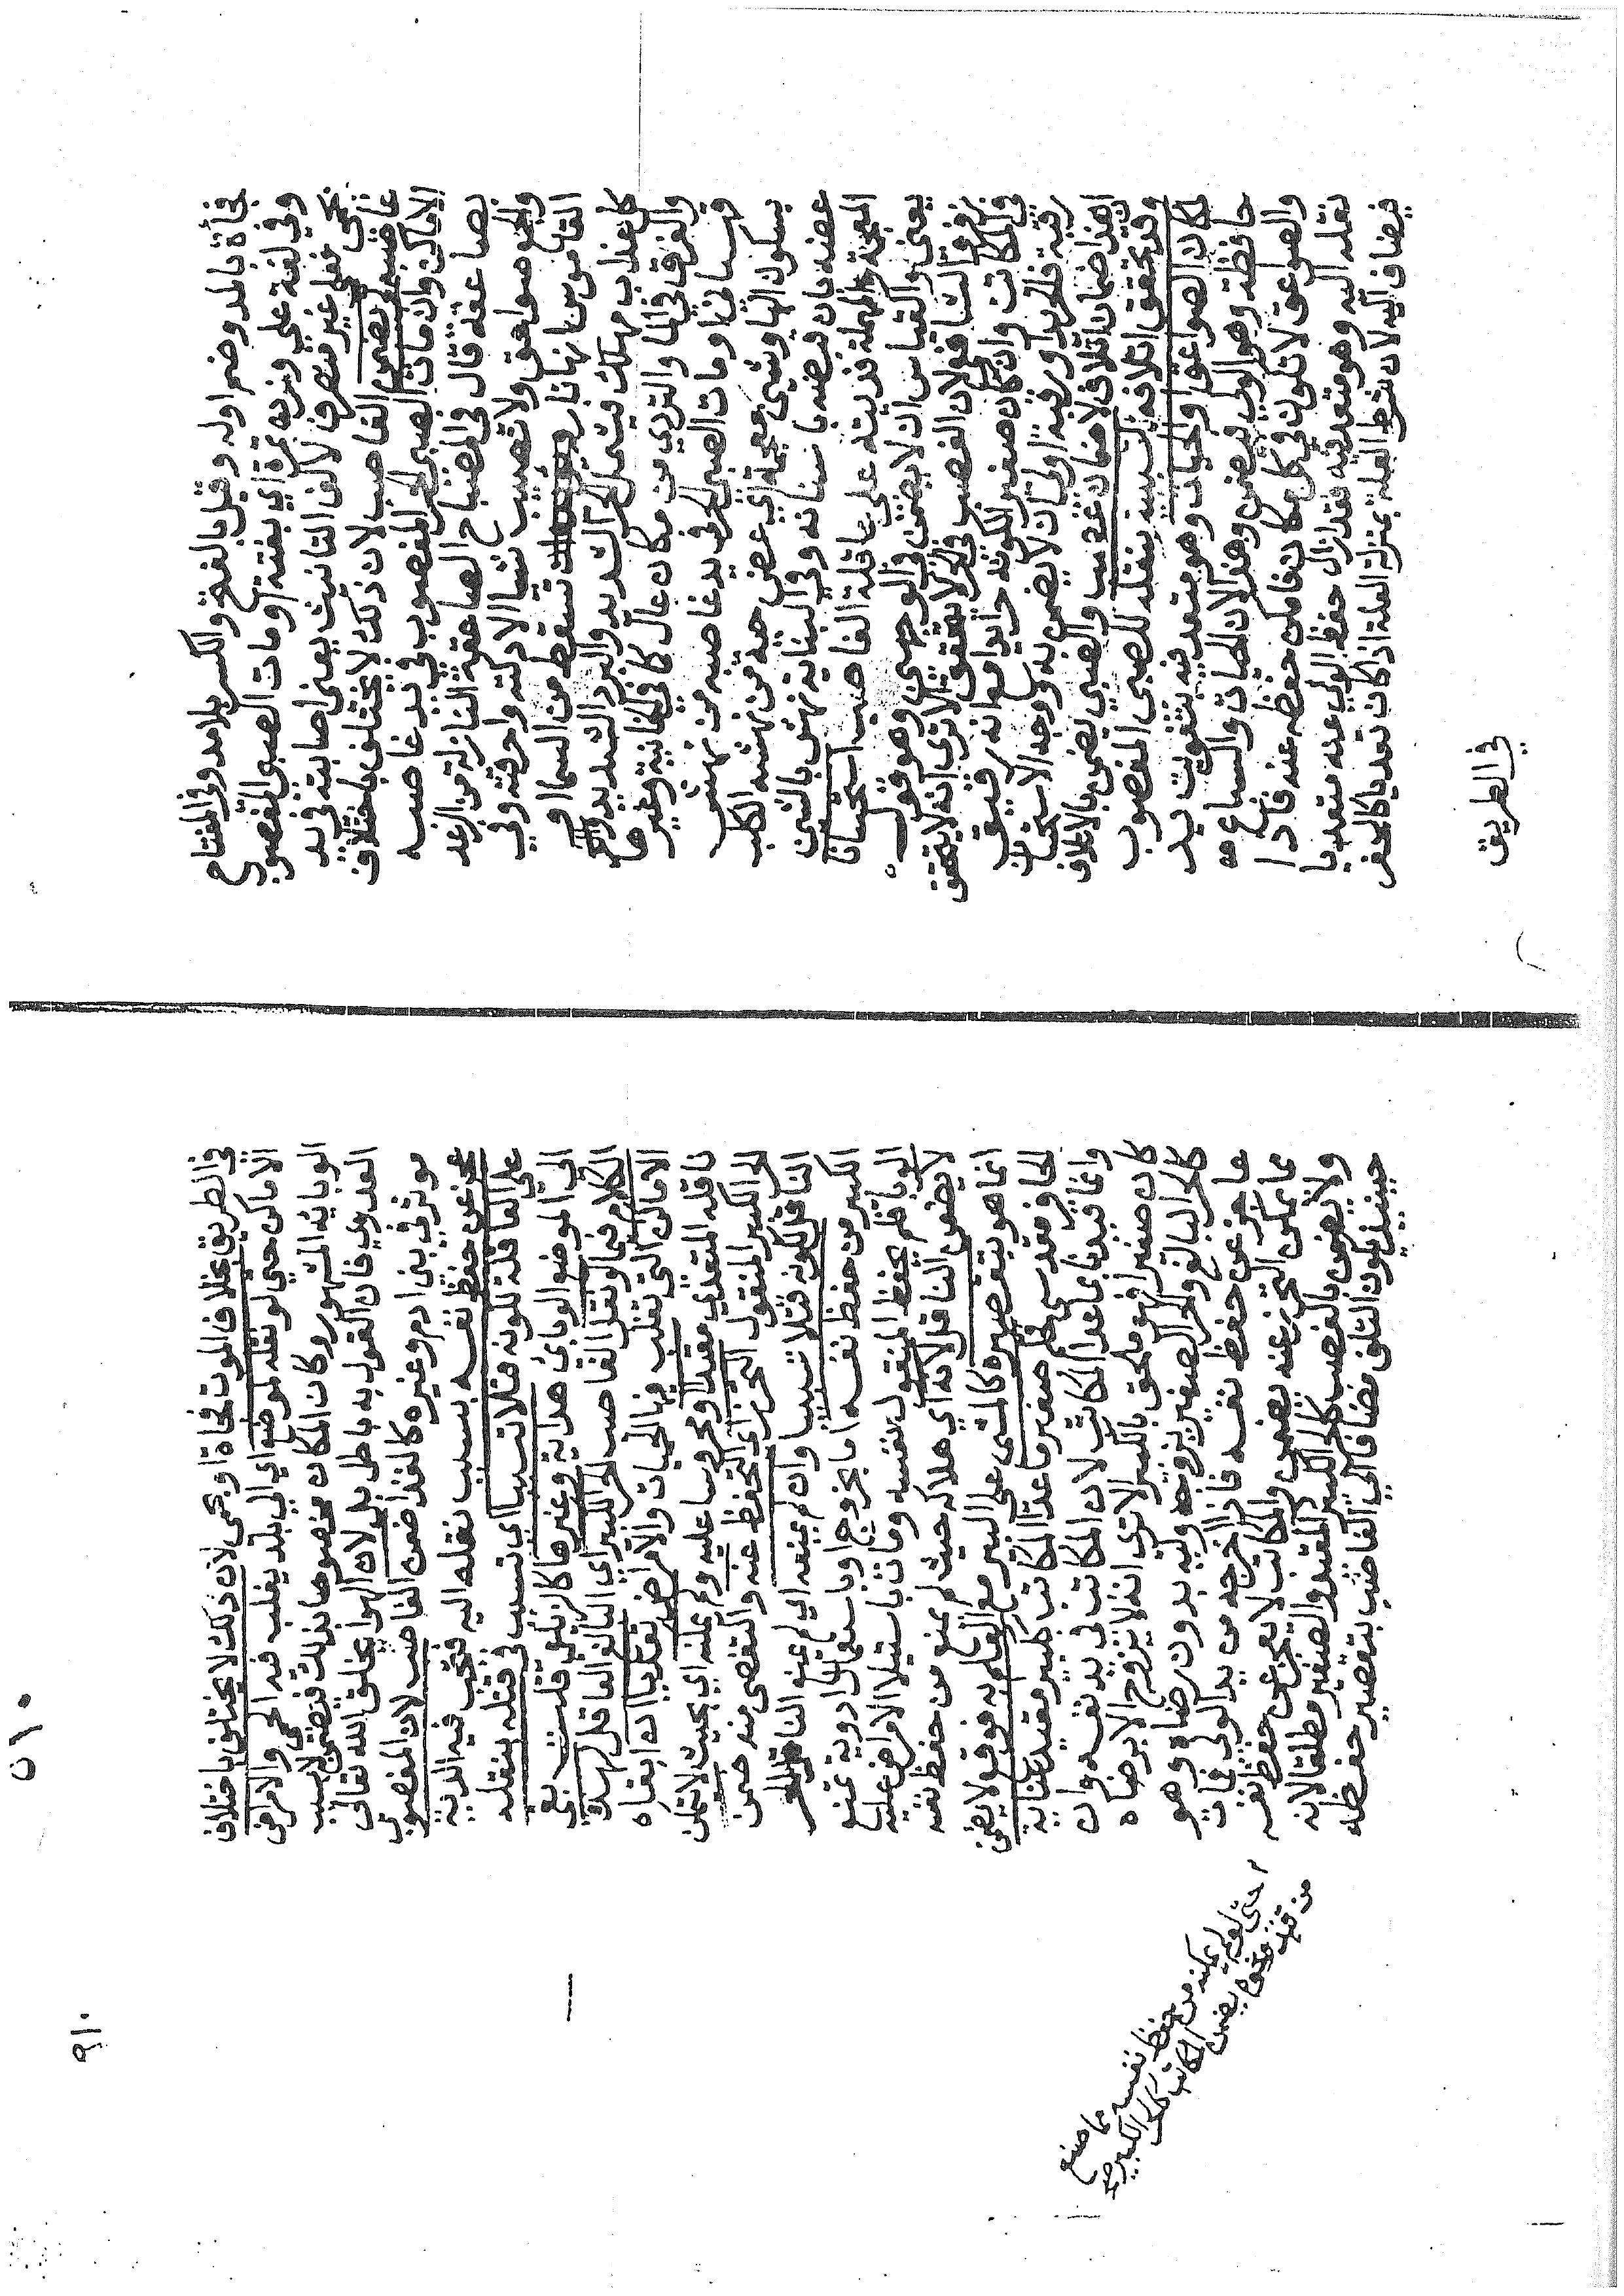 فجأة بالمد وضم اوله وقيل بالفتح والكسر بلا مد وفي المفتاح
وفي لغة علي وزن تمرة اي بغتة او مات الصبي المغصوب
بحمى فعلى غير منصرف لالف التانيث يعني اصابته في يد
غاصبه لم يضمن الغاصب لان ذلك لا يختلف باختلاف
الاماكن وان مات الصبي الحر المغصوب في يد غاصبه
بصاعقة قال في المصباح الصاعقة النازلة من الرعد
والجمع صواعق ولا تصيب شيا الا دكته واحرقته وفي
القاموس انها نار تسقط من السما او
كل عذاب مهلك فيشمل الحر الشديد والبرد الشديد
والغرق في الما والتردي من مكان عال كما في الخانية وغيرها
قهستاني او مات الصبي الحر في يد غاصبه من نهش
بسكون الها وشين معجمة اي عض حية من نهشه الكلب
عضه بان قبضه باسنانه وفي البناية نهش بالشين
المعجمة والمهملة فديته علي عاقلة الغاصب استحسانا
يعني والقياس ان لا يضمن في الوجهين وهو قول
زفر والشافعي لان الغصب في الحر لا يتحقق الا ترى انه لا يتحقق
في المكاتب وان كان صغيرا لكونه حرا يدا مع انه رقيق
رقبة فالحر يدا ورقبة اولى ان لا يضمن به وجه الاستحسان
ان هذا ضمان اتلاف لا ضمان غصب والصبي يضمن بالاتلاف
وقد تحقق اتلافه تسبيبا بنقله للصبي المغصوب
لمكان الصواعق او الحيات وهو متعد فيه بتفويت يد
حافظة وهو الولي فيضمن وهذا لان الحيات والسباع
والصواعق لا تكون في كل مكان فامكن حفظه عنه فاذا
نقله اليه وهو متعد فيه فقد ازال حفظ الولي عنه متعديا
فيضاف اليه لان شرط العلة بمنزلة العلة اذا كان تعديا كالحفر
في الطريق
٥١٠
في الطريق بخلاف الموت فجأة او بحمى لان ذلك لا يختلف باختلاف
الاماكن حتى لو نقله لموضع اي الي بلد يغلب فيه الحمى والامراض
الوبائية المشهورة وكان المكان مخصوصا بذلك فيضمن لا بسبب
العدوي فان القول به باطل بل لان الهوا بخلق الله تعالى
موثر في بني ادم وغيره كالغذا ضمن الغاصب لان المغصوب
عجز عن حفظ نفسه بسبب نقله اليه فتجب فيه الدية
علي العاقلة لكونه قتلا تسبيبا اي تسبب في قتله بنقله
الي الموضع الوبائ هداية وغيرها كالزيلعي قلت بقي
الكلام فيما لو نقل الغاصب الحر الكبير اي البالغ العاقل لهذه
الاماكن التي تغلب فيها الحيات والامراض تعديا ان
ناقله المتعدي مقيدا ومحروسا عليه ولم يمكنه اي بحيث لا يتمكن
الحر الكبير المنقول التحرز اي التحفظ عنه والتقصي منه ضمن
الناقل لكونه قتلا تسبيبا وان لم يمنعه اي لم يمنع الناقل الحر
الكبير من حفظ نفسه اما بخروج او باستعمال ادوية تمنع
الوبا فلم يحفظ المنقول نفسه ومات باستيلا الامراض عليه
لا يضمن الناقل لانه اي هلاكه حيث لم يمنع من حفظ نفسه
انما هو بتقصيره كالمشي علي البير مع العلم به فوقع لا يضمن
الحافر فقد سي حكم صغير ما عدا المكاتب ككبير مقيد عناية
وانما قيدنا بما عدا المكاتب لان المكاتب في يد نفسه وان
كان صغيرا فهو ملحق بالكبير الا ترى انه لا يزوج الا برضاه
كالحر البالغ والحر الصغير يزوجه وليه بدون رضاه وهو
عاجز عن حفظ نفسه فاذا اخرجه من يد الولي فمات
مما يمكن التحرز عنه يضمن والمكاتب لا يعجز عن حفظ نفسه
ولا يضمن بالغصب كالحر الكبير المقيد والصغير مطلقا لانه
حينيذ يكون التلف مضافا الي الغاصب بتقصير حفظه
حتى لو لم يمكنه من حفظ نفسه بما صنع
من قيد ونحوه يضمن المكاتب كالحر الكبير صح
٩١٠